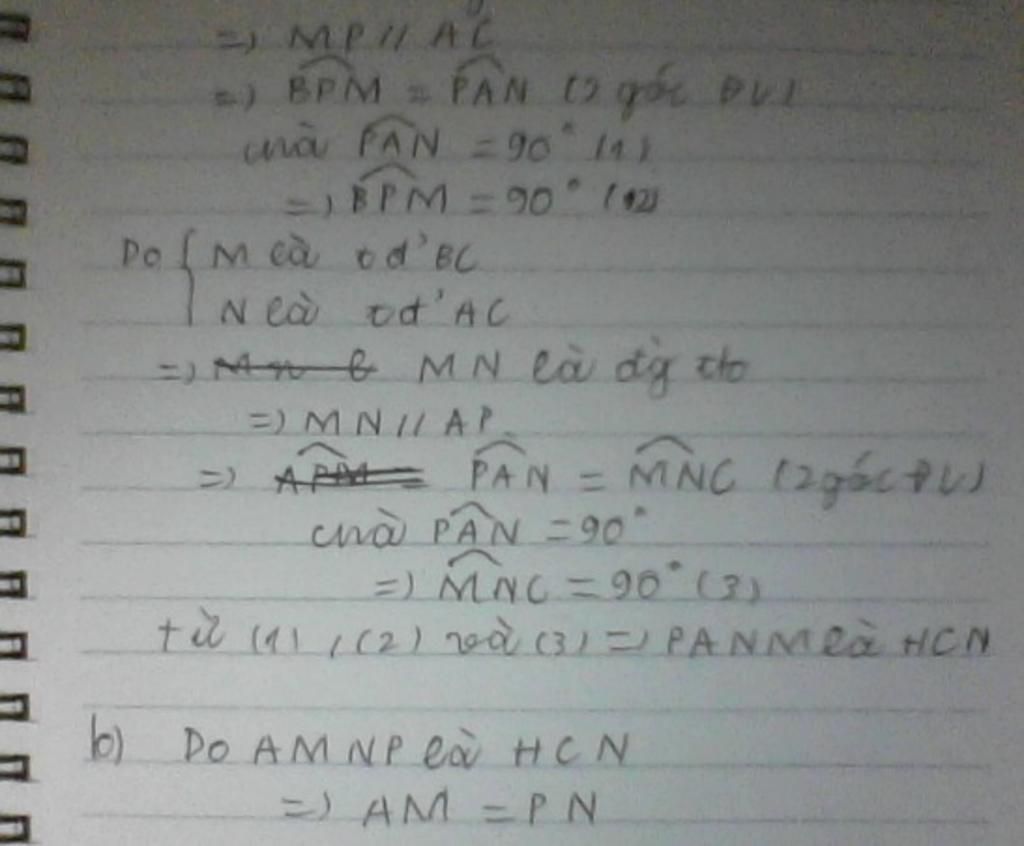 =) MP // AC
=) BPM = PAN (2 góc ĐV)
mà PAN = 90° (1)
=) BPM = 90° (2)
Do { M là tđ' BC
N là tđ' AC
=) MN là đg tb
=) MN // AP
=) APM = PAN = MNC (2 góc ĐV)
mà PAN = 90°
=) MNC = 90° (3)
từ (1), (2) và (3) =) PANM là HCN
b) Do AMNP là HCN
=) AM = PN